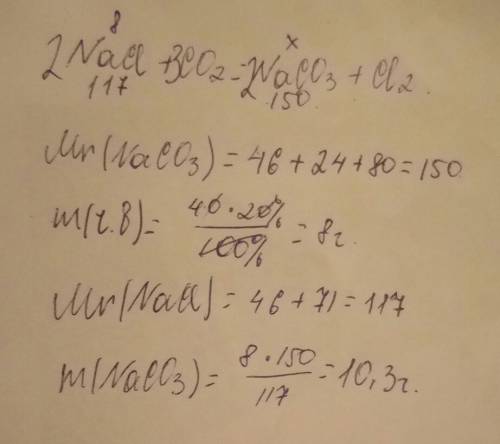 8 x
2NaCl + 3CO2 = 2NaCO3 + Cl2.
117 150
Mr(NaCO3) = 46 + 24 + 80 = 150
m(г.в) = 40 · 20% / 100% = 8г.
Mr(NaCl) = 46 + 71 = 117
m(NaCO3) = 8 · 150 / 117 = 10,3г.